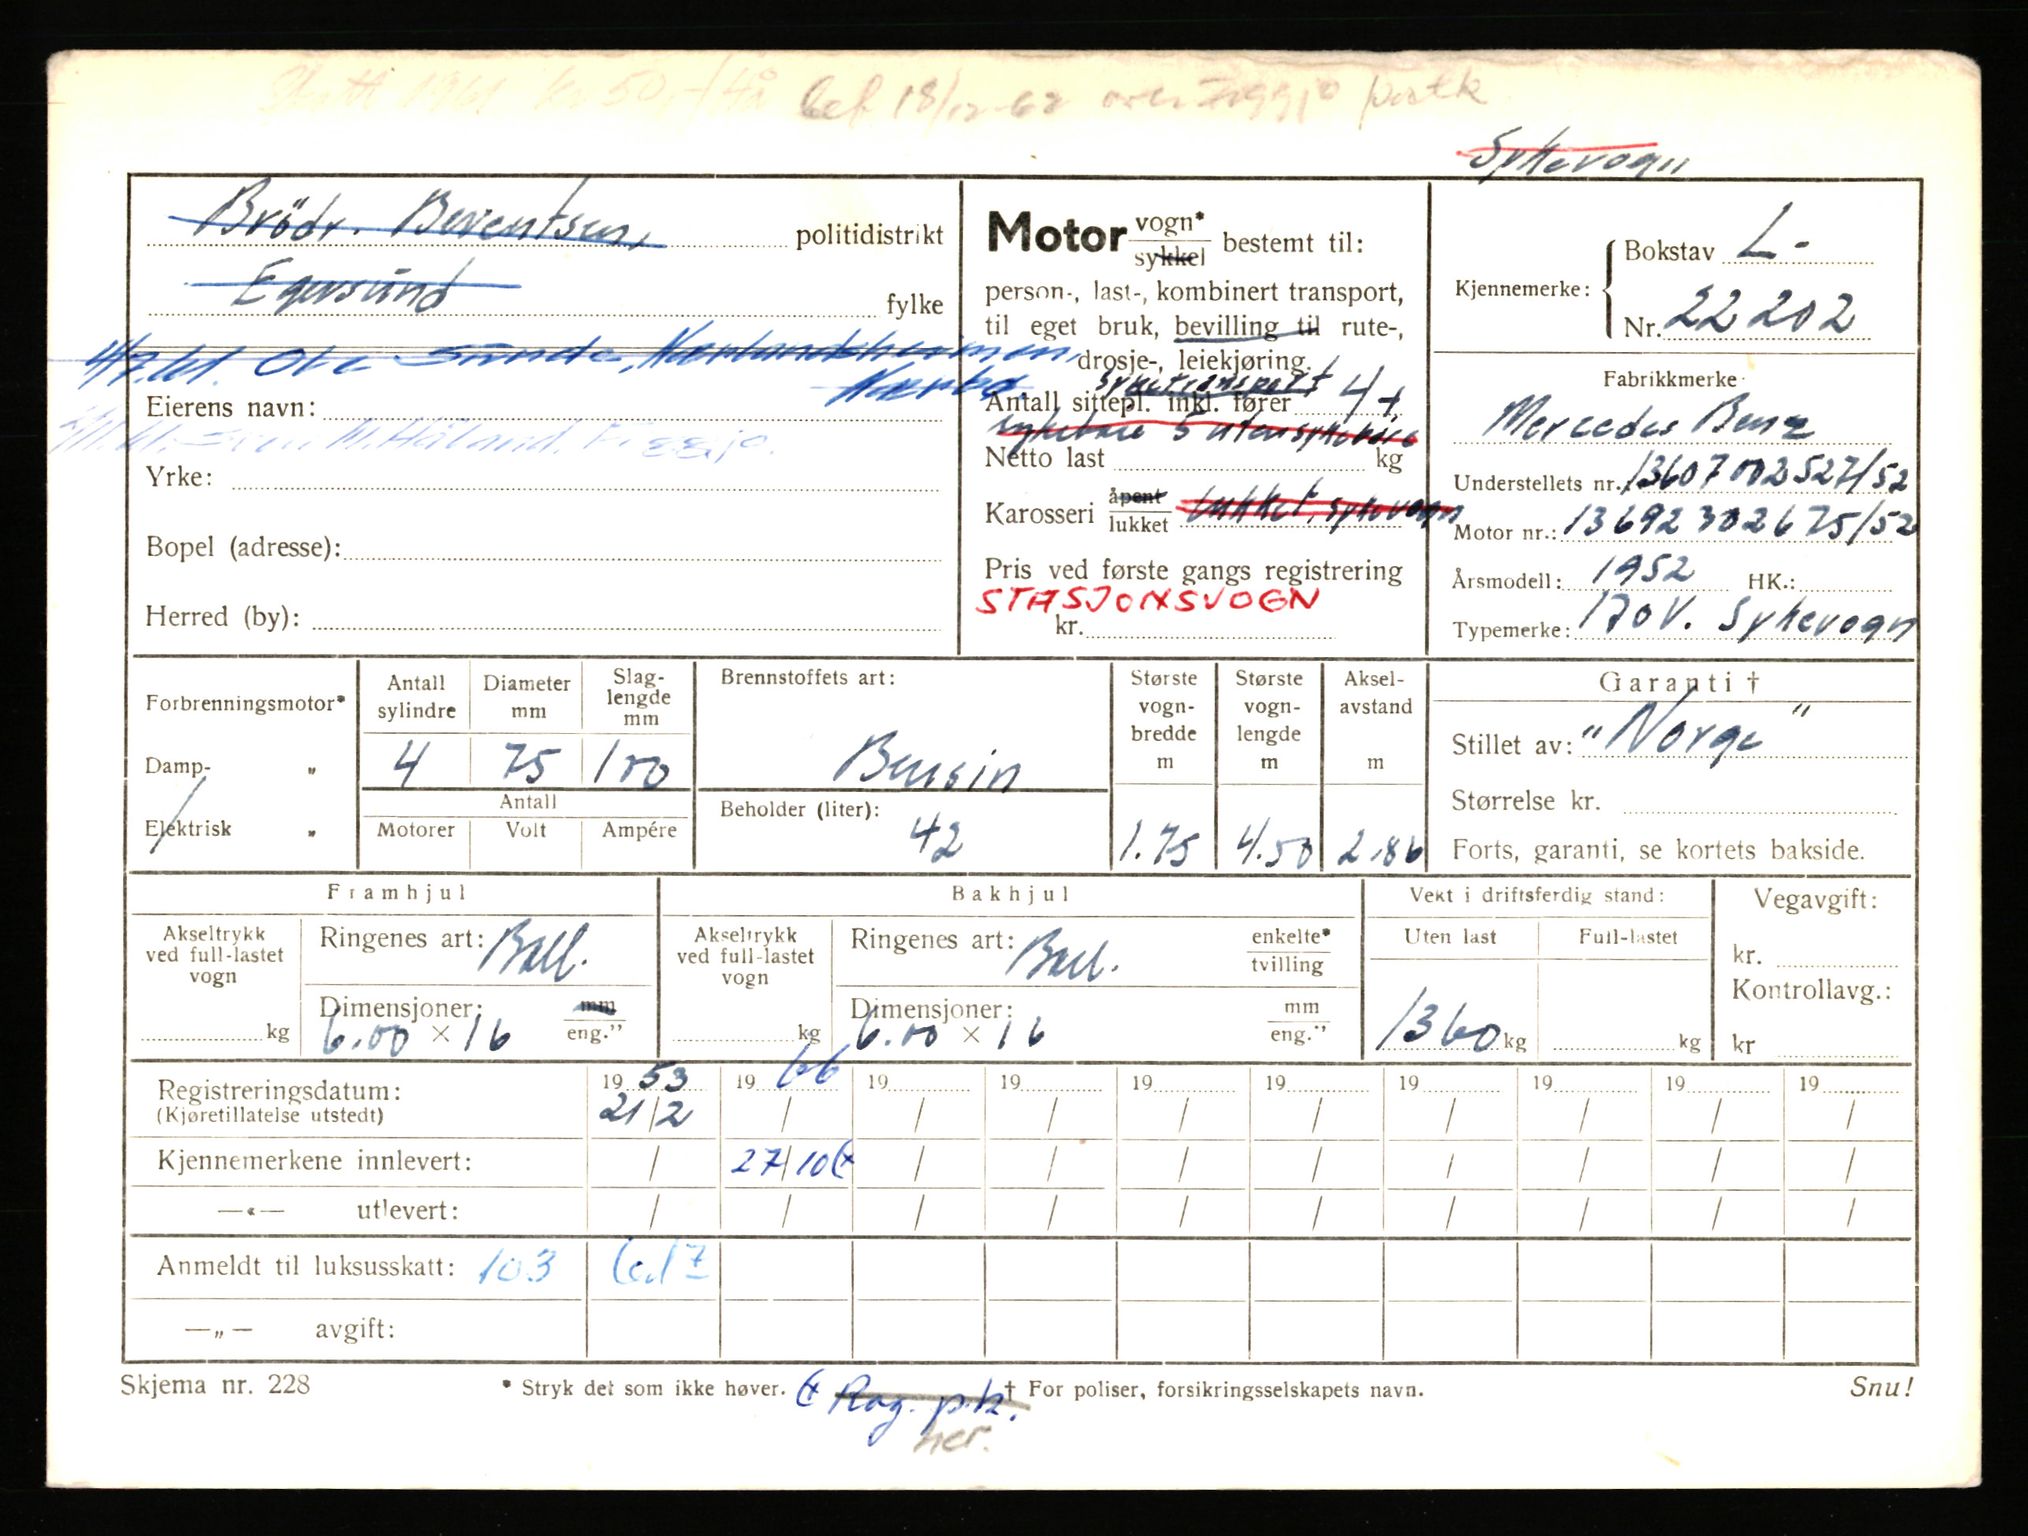 Skatt 1961 kr 50,- Hå bet 18/12-62 over Figgjo postk
Sykevogn
Brödr. Berentsen, politidistrikt
Egersund fylke
4/7.61. Ole Sunde, Nærlandsheimen,
Nærbø.
Eierens navn:
Håland. Figgjo.
Yrke:
Bopel (adresse):
Herred (by):
Motor vogn* sykkel bestemt til:
person-, last-, kombinert transport,
til eget bruk, bevilling til rute-,
drosje-, leiekjøring.
syketransport
Antall sittepl. inkl. fører 4 +
sykebåre 5 uten sykebåre
Netto last kg
Karosseri åpent lukket Lukket, sykevogn
Pris ved første gangs registrering
STASJONSVOGN
kr.
Kjennemerke: Bokstav L-
Nr. 22202
Fabrikkmerke
Mercedes Benz
Understellets nr. 13607002527/52
Motor nr.: 13692302675/52
Årsmodell: 1952 HK.:
Typemerke: 170V. Sykevogn
Forbrenningsmotor*
Damp- „
Elektrisk „
Antall sylindre 4
Diameter mm 75
Slag-lengde mm 100
Antall
Motorer Volt Ampére
Brennstoffets art:
Bensin
Beholder (liter):
42
Største vogn-bredde m 1.75
Største vogn-lengde m 4.50
Aksel-avstand m 2.86
Garanti †
Stillet av: "Norge"
Størrelse kr.
Forts, garanti, se kortets bakside.
Framhjul
Akseltrykk ved full-lastet vogn kg
Ringenes art: Ball.
Dimensjoner: mm eng."
6.00 × 16
Bakhjul
Akseltrykk ved full-lastet vogn kg
Ringenes art: Ball. enkelte* tvilling
Dimensjoner: mm eng."
6.00 × 16
Vekt i driftsferdig stand:
Uten last Full-lastet
1360 kg kg
Vegavgift:
kr.
Kontrollavg.:
kr
Registreringsdatum: 19 53 19 66 19 19 19 19 19 19 19 19
(Kjøretillatelse utstedt) 21/2 / / / / / / / / /
Kjennemerkene innlevert: / 27/10 (x / / / / / / / /
—«— utlevert: / / / / / / / / / /
Anmeldt til luksusskatt: 103
—„— avgift:
Skjema nr. 228 * Stryk det som ikke høver. (x Rog. p.k. † For poliser, forsikringsselskapets navn. Snu!
her.